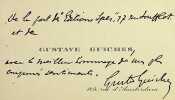 De la part d'Éditions Spes, 17 rue Soufflot
et de
GUSTAVE GUICHES
avec le meilleur hommage de ses plus
sentiments.
Gustave Guiches
rue d'Amsterdam